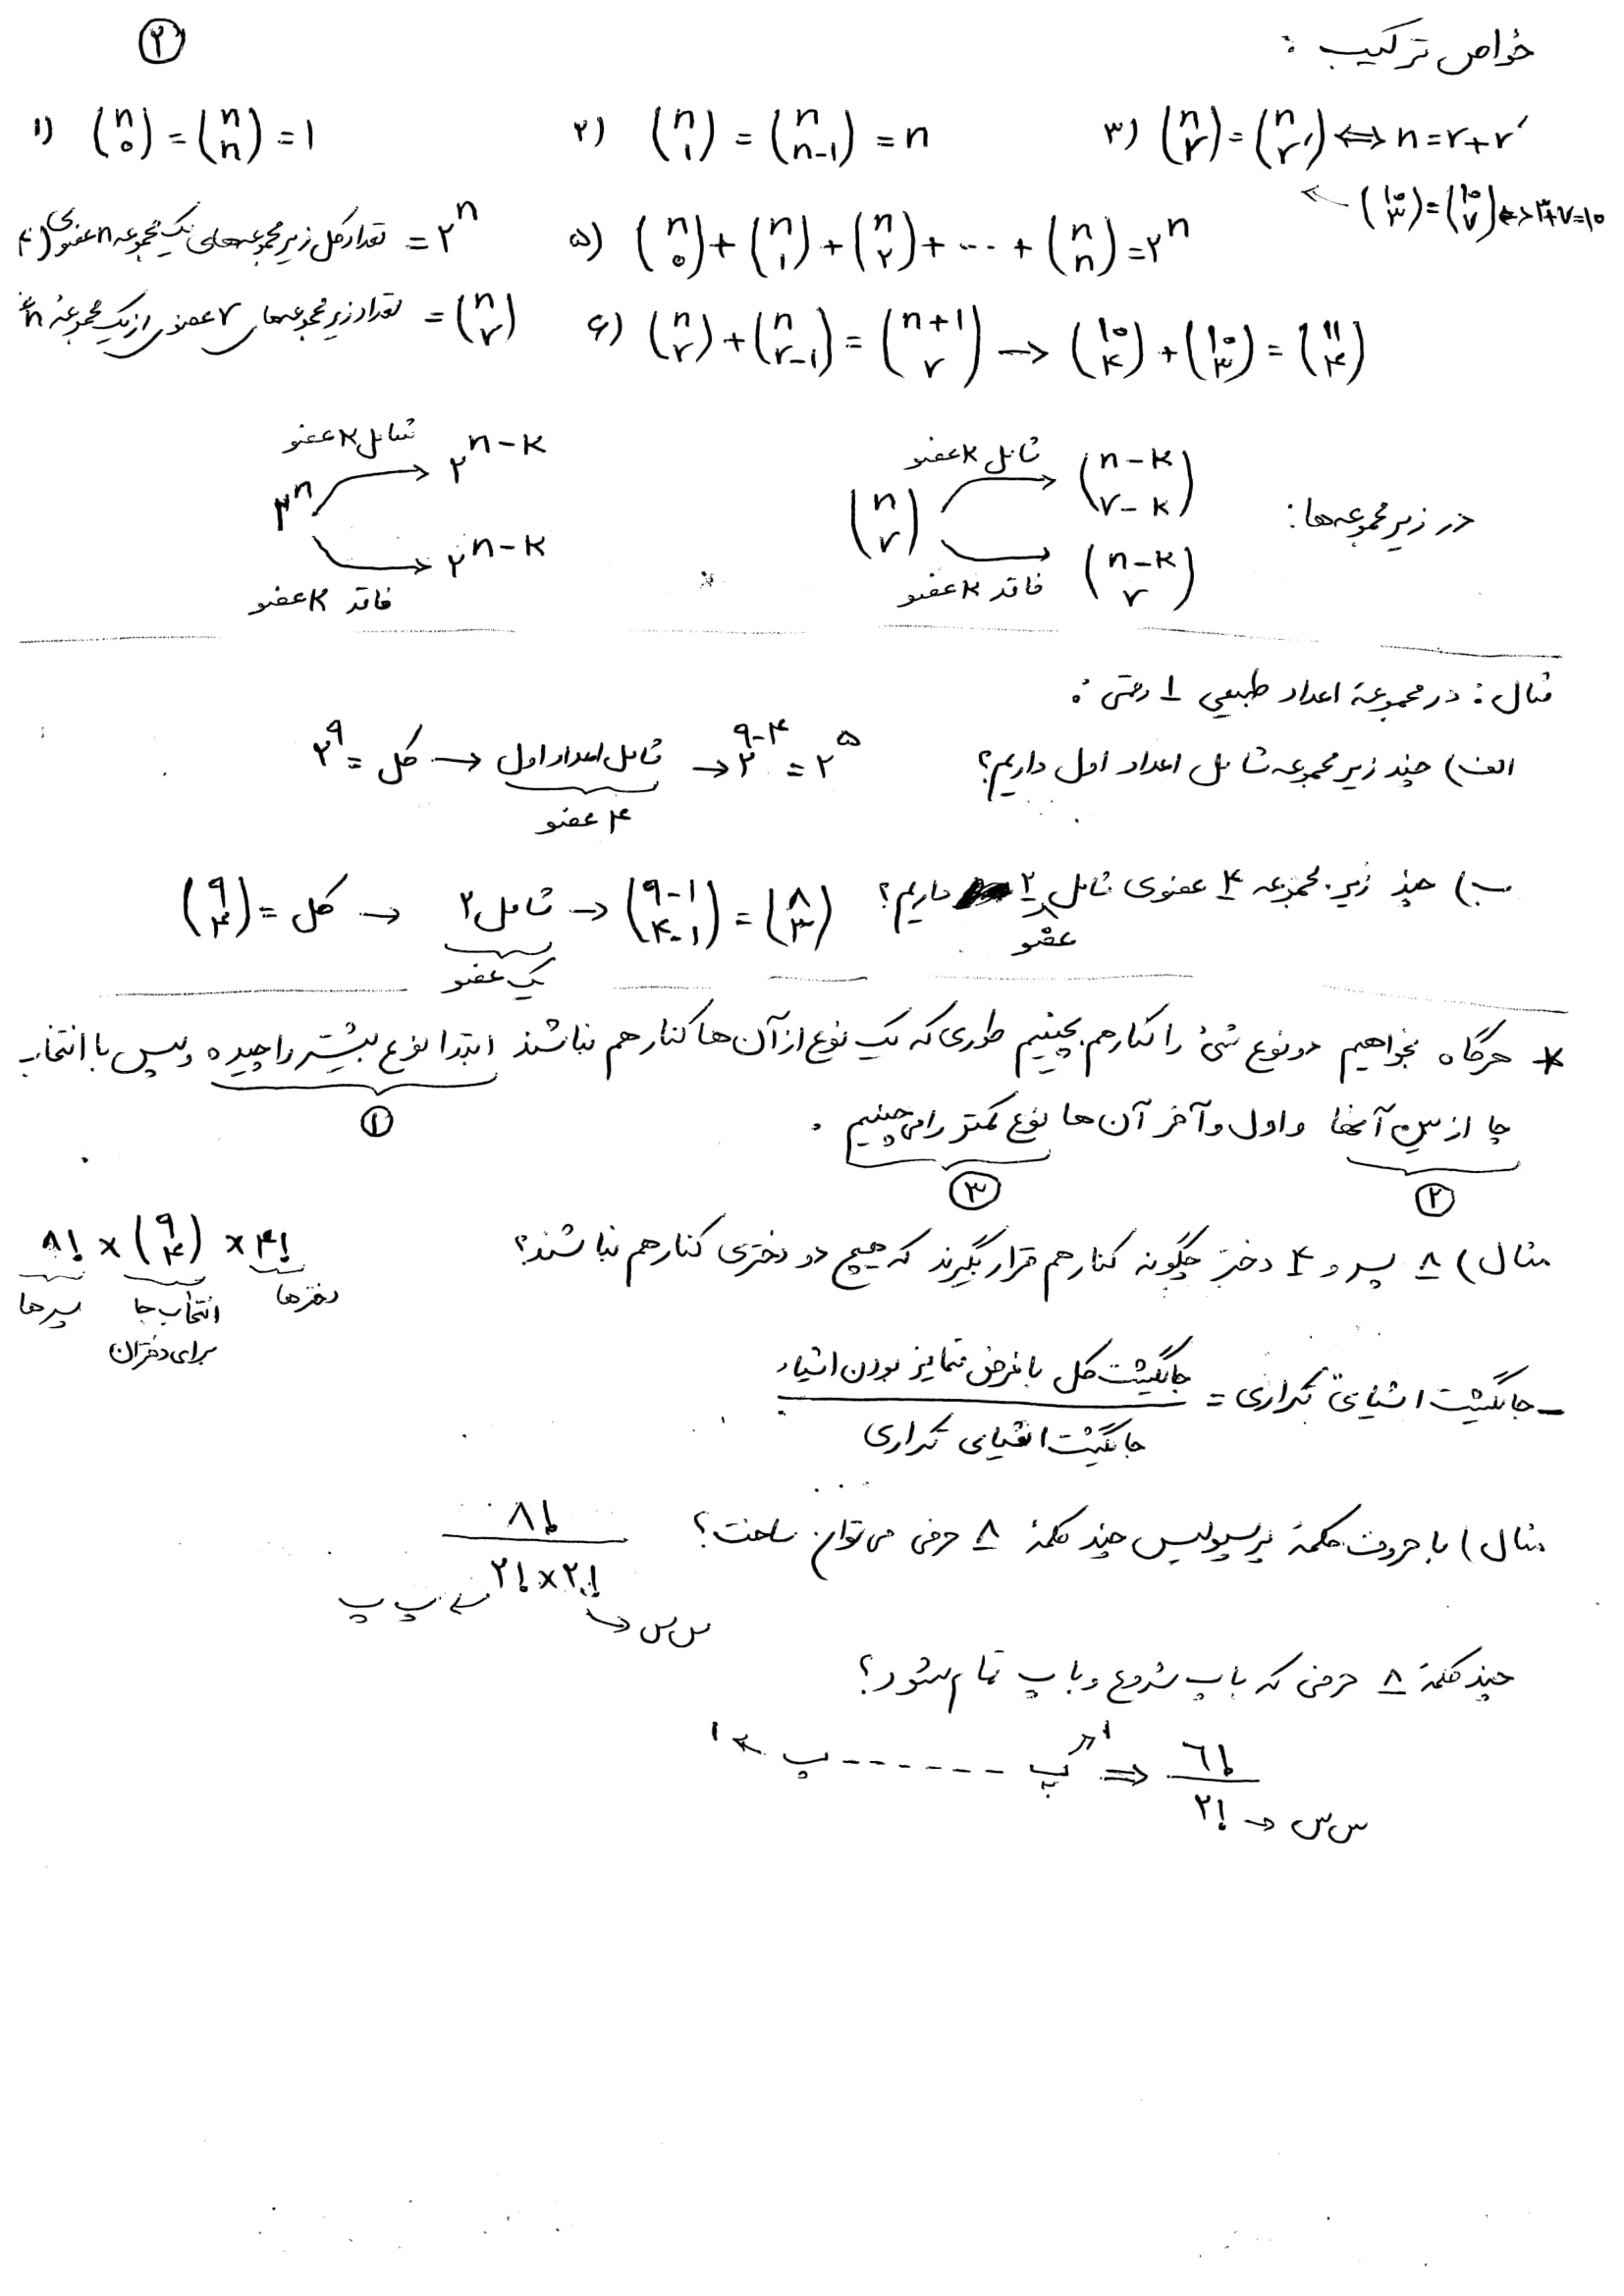 ۲
خواص ترکیب :
۱) (n ۰) = (n n) = ۱   ۲) (n ۱) = (n n-۱) = n   ۳) (n r) = (n r′) ⇔ n = r + r′
(۱۰ ۳) = (۱۰ ۷) ⇔ ۳+۷=۱۰
۴) تعداد کل زیرمجموعه‌های یک مجموعه n عضوی = ۲^n   ۵) (n ۰) + (n ۱) + (n ۲) + ... + (n n) = ۲^n
تعداد زیرمجموعه‌های r عضوی از یک مجموعهٔ n = (n r)   ۶) (n r) + (n r-۱) = (n+۱ r) → (۱۰ ۴) + (۱۰ ۳) = (۱۱ ۴)
در زیرمجموعه‌ها:
(n r) شامل k عضو → (n-k r-k)
فاقد k عضو → (n-k r)
۲^n شامل k عضو → ۲^(n-k)
فاقد k عضو → ۲^(n-k)
مثال : در مجموعهٔ اعداد طبیعی ۱ رقمی :
الف) چند زیرمجموعه شامل اعداد اول داریم؟   کل = ۲^۹ → شامل اعداد اول → ۲^(۹-۴) = ۲^۵
۴ عضو
ب) چند زیرمجموعه ۴ عضوی شامل ۲ داریم؟   کل = (۹ ۴) → شامل ۲ → (۹-۱ ۴-۱) = (۸ ۳)
عضو
یک عضو
* هرگاه بخواهیم دو نوع شیٔ را کنار هم بچینیم طوری که یک نوع از آن‌ها کنار هم نباشند ابتدا نوع بیشتر را چیده و سپس با انتخاب
۱
جا از بین آنها و اول و آخر آن‌ها نوع کمتر را می‌چینیم .
۲   ۳
مثال) ۸ پسر و ۴ دختر چگونه کنار هم قرار بگیرند که هیچ دو دختری کنار هم نباشند؟   ۸! × (۹ ۴) × ۴!
پسرها   انتخاب جا   دخترها
برای دختران
- جایگشت اشیای تکراری = جایگشت کل با فرض متمایز بودن اشیاء
جایگشت اشیای تکراری
مثال) با حروف کلمهٔ پرسپولیس چند کلمهٔ ۸ حرفی می‌توان ساخت؟   ۸!
۲! × ۲!
پ پ   س س
چند کلمهٔ ۸ حرفی که با پ شروع و با پ تمام شود؟
۱ ← پ ------ پ → ۱ ⇒ ۶!
۲! → س س